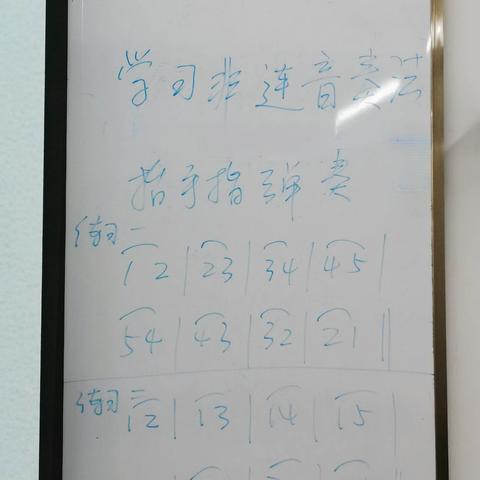 学习非连音奏法
指手指弹奏
练习一
12|23|34|45|
54|43|32|21‖
练习二
12|13|14|15|